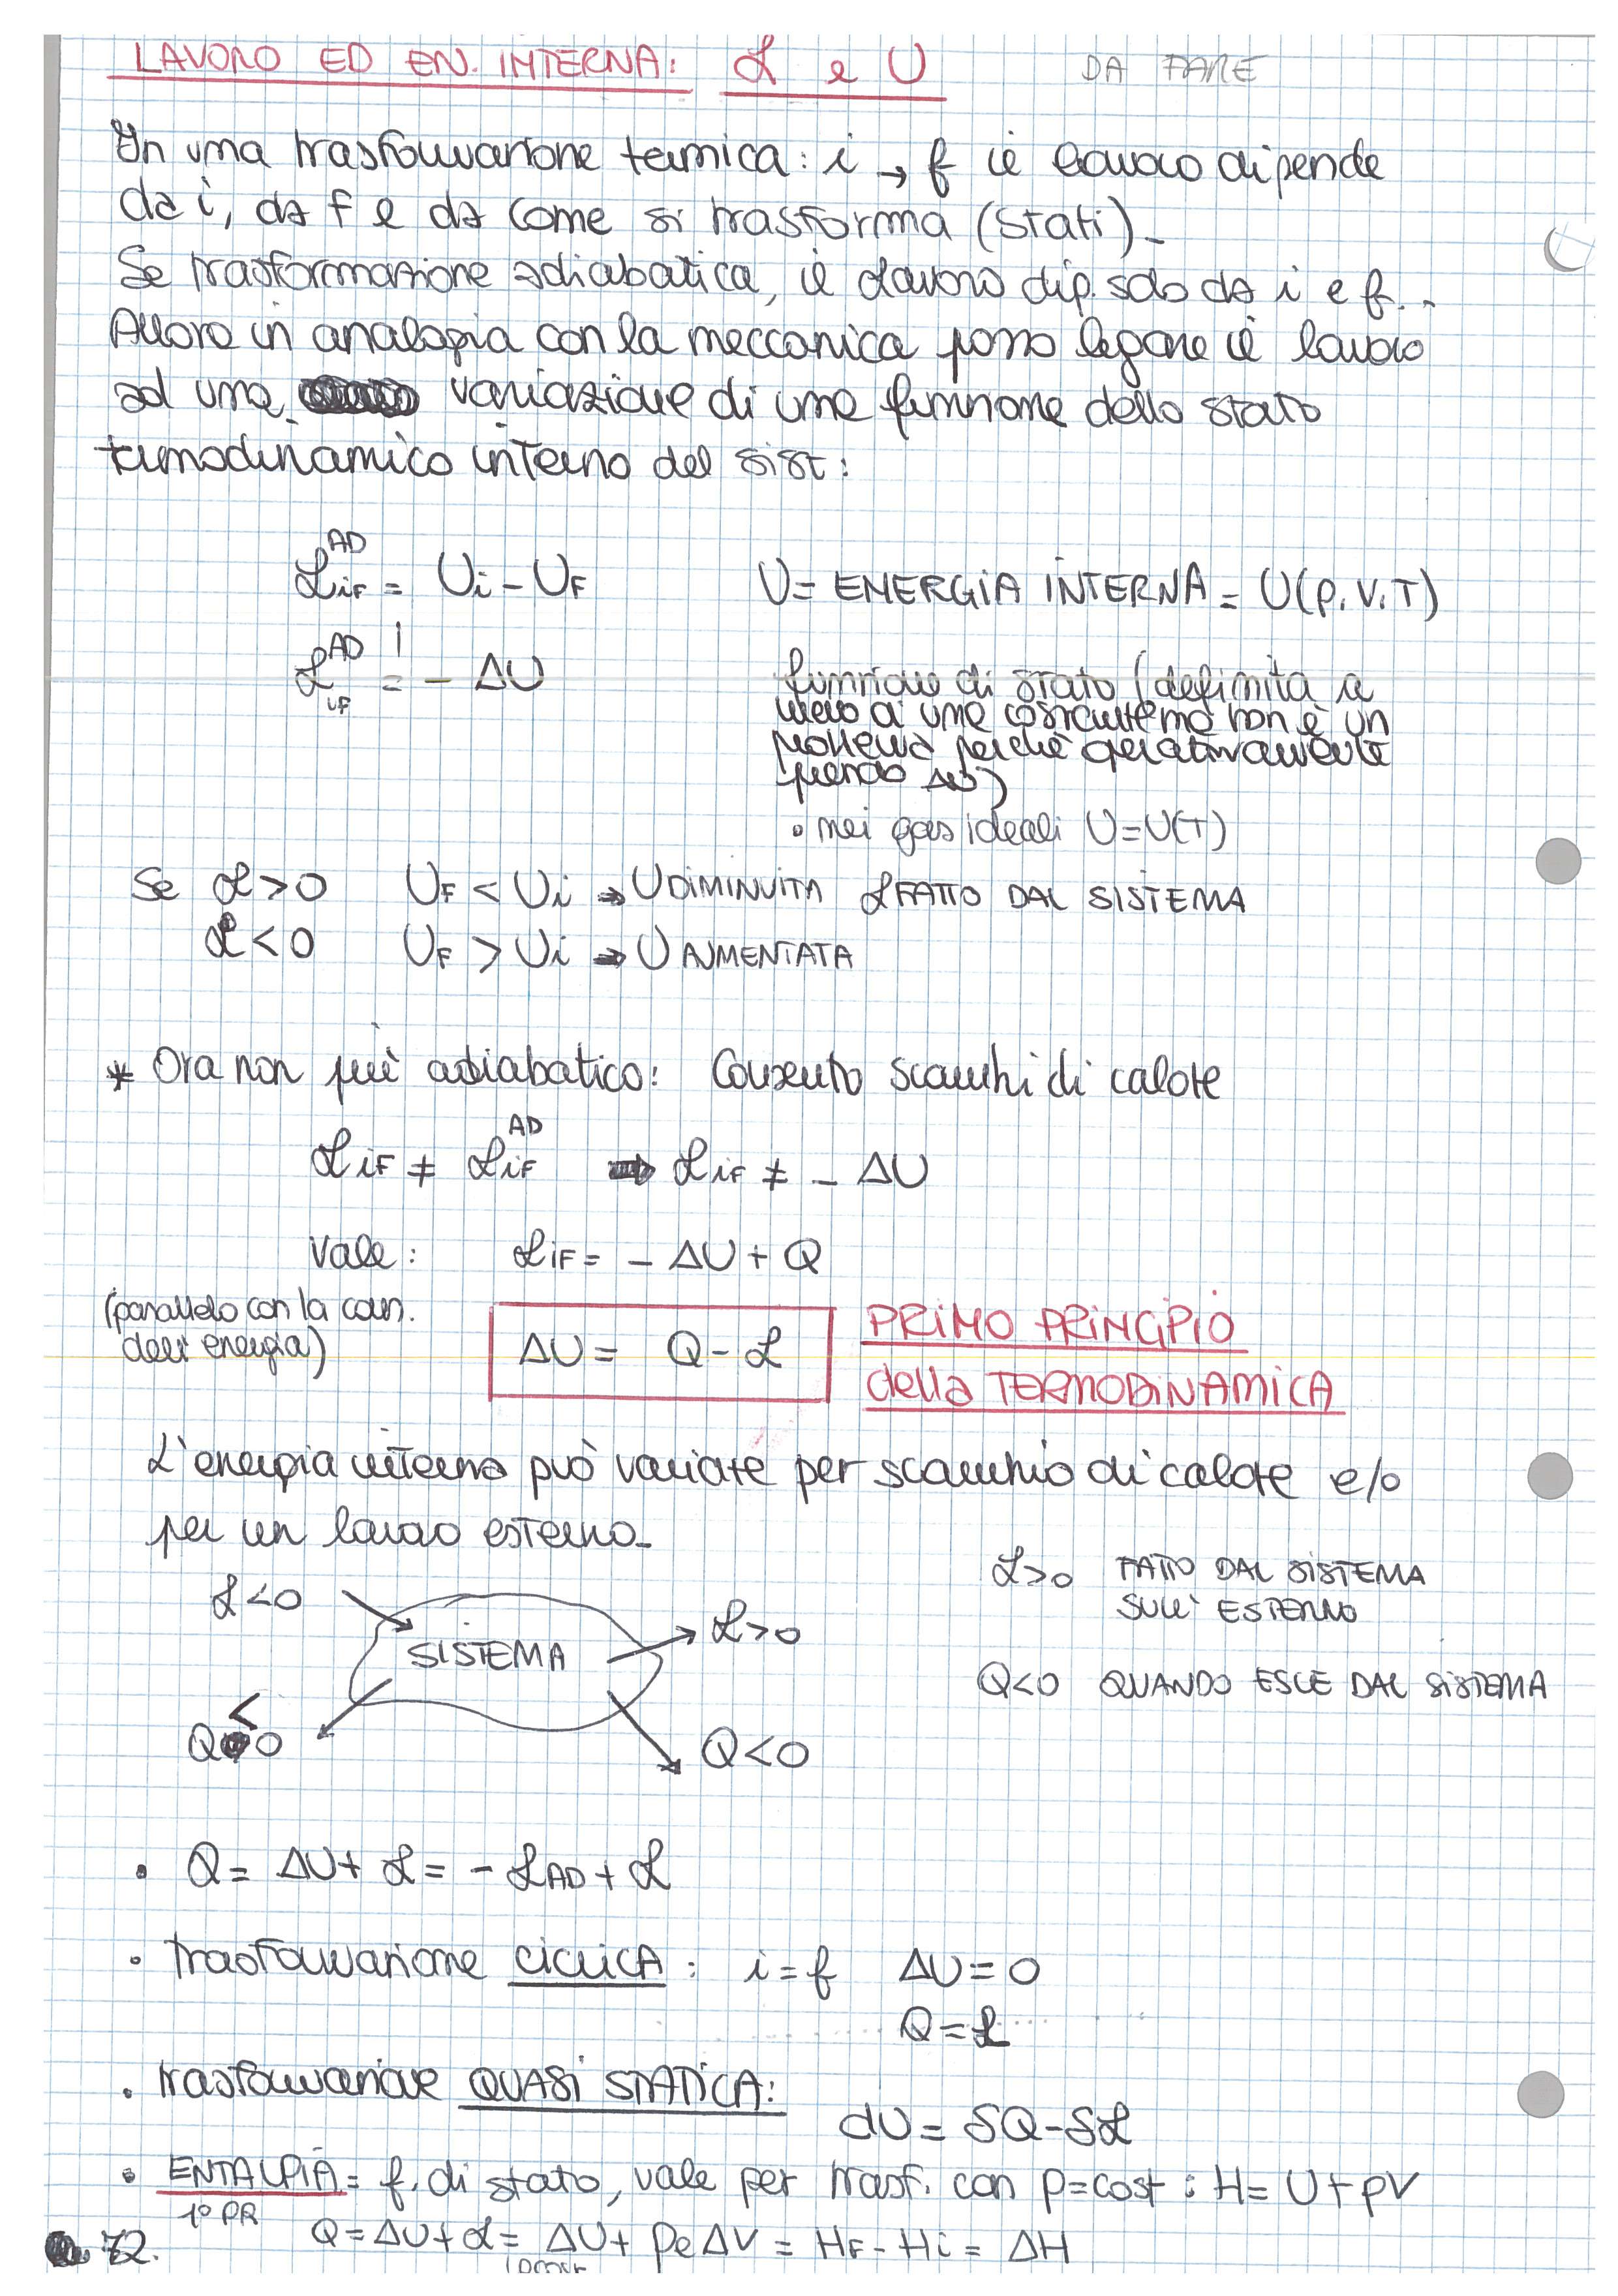 LAVORO ED EN. INTERNA: L e U DA FARE
In una trasformazione termica: i → f il lavoro dipende
da i, da f e da come si trasforma (stati).
Se trasformazione adiabatica, il lavoro dip. solo da i e f.
Allora in analogia con la meccanica posso legare il lavoro
ad una variazione di una funzione dello stato
termodinamico interno del sist:
L_if^AD = Ui - UF U = ENERGIA INTERNA = U(p,V,T)
L_if^AD = - ΔU
funzione di stato (definita a
meno di una costante ma non è un
problema perché operativamente
prendo ΔU)
• nei gas ideali U=U(T)
Se L>0 UF < Ui ⇒ U DIMINUITA L FATTO DAL SISTEMA
L<0 UF > Ui ⇒ U AUMENTATA
* Ora non più adiabatico: Consento scambi di calore
L_iF ≠ L_iF^AD ⇒ L_iF ≠ - ΔU
Vale: L_iF = - ΔU + Q
(parallelo con la cons.
dell'energia)
ΔU = Q - L
PRIMO PRINCIPIO
della TERMODINAMICA
L'energia interna può variare per scambio di calore e/o
per un lavoro esterno.
L>0 FATTO DAL SISTEMA
SULL' ESTERNO
L<0
SISTEMA
L>0
Q<0 QUANDO ESCE DAL SISTEMA
Q<0
Q<0
• Q = ΔU + L = - L_AD + L
• Trasformazione CICLICA: i = f ΔU = 0
Q = L
• trasformazione QUASI STATICA:
dU = δQ - δL
• ENTALPIA = f. di stato, vale per trasf. con p=cost: H = U + pV
1° PR Q = ΔU + L = ΔU + pe ΔV = HF - Hi = ΔH
72.